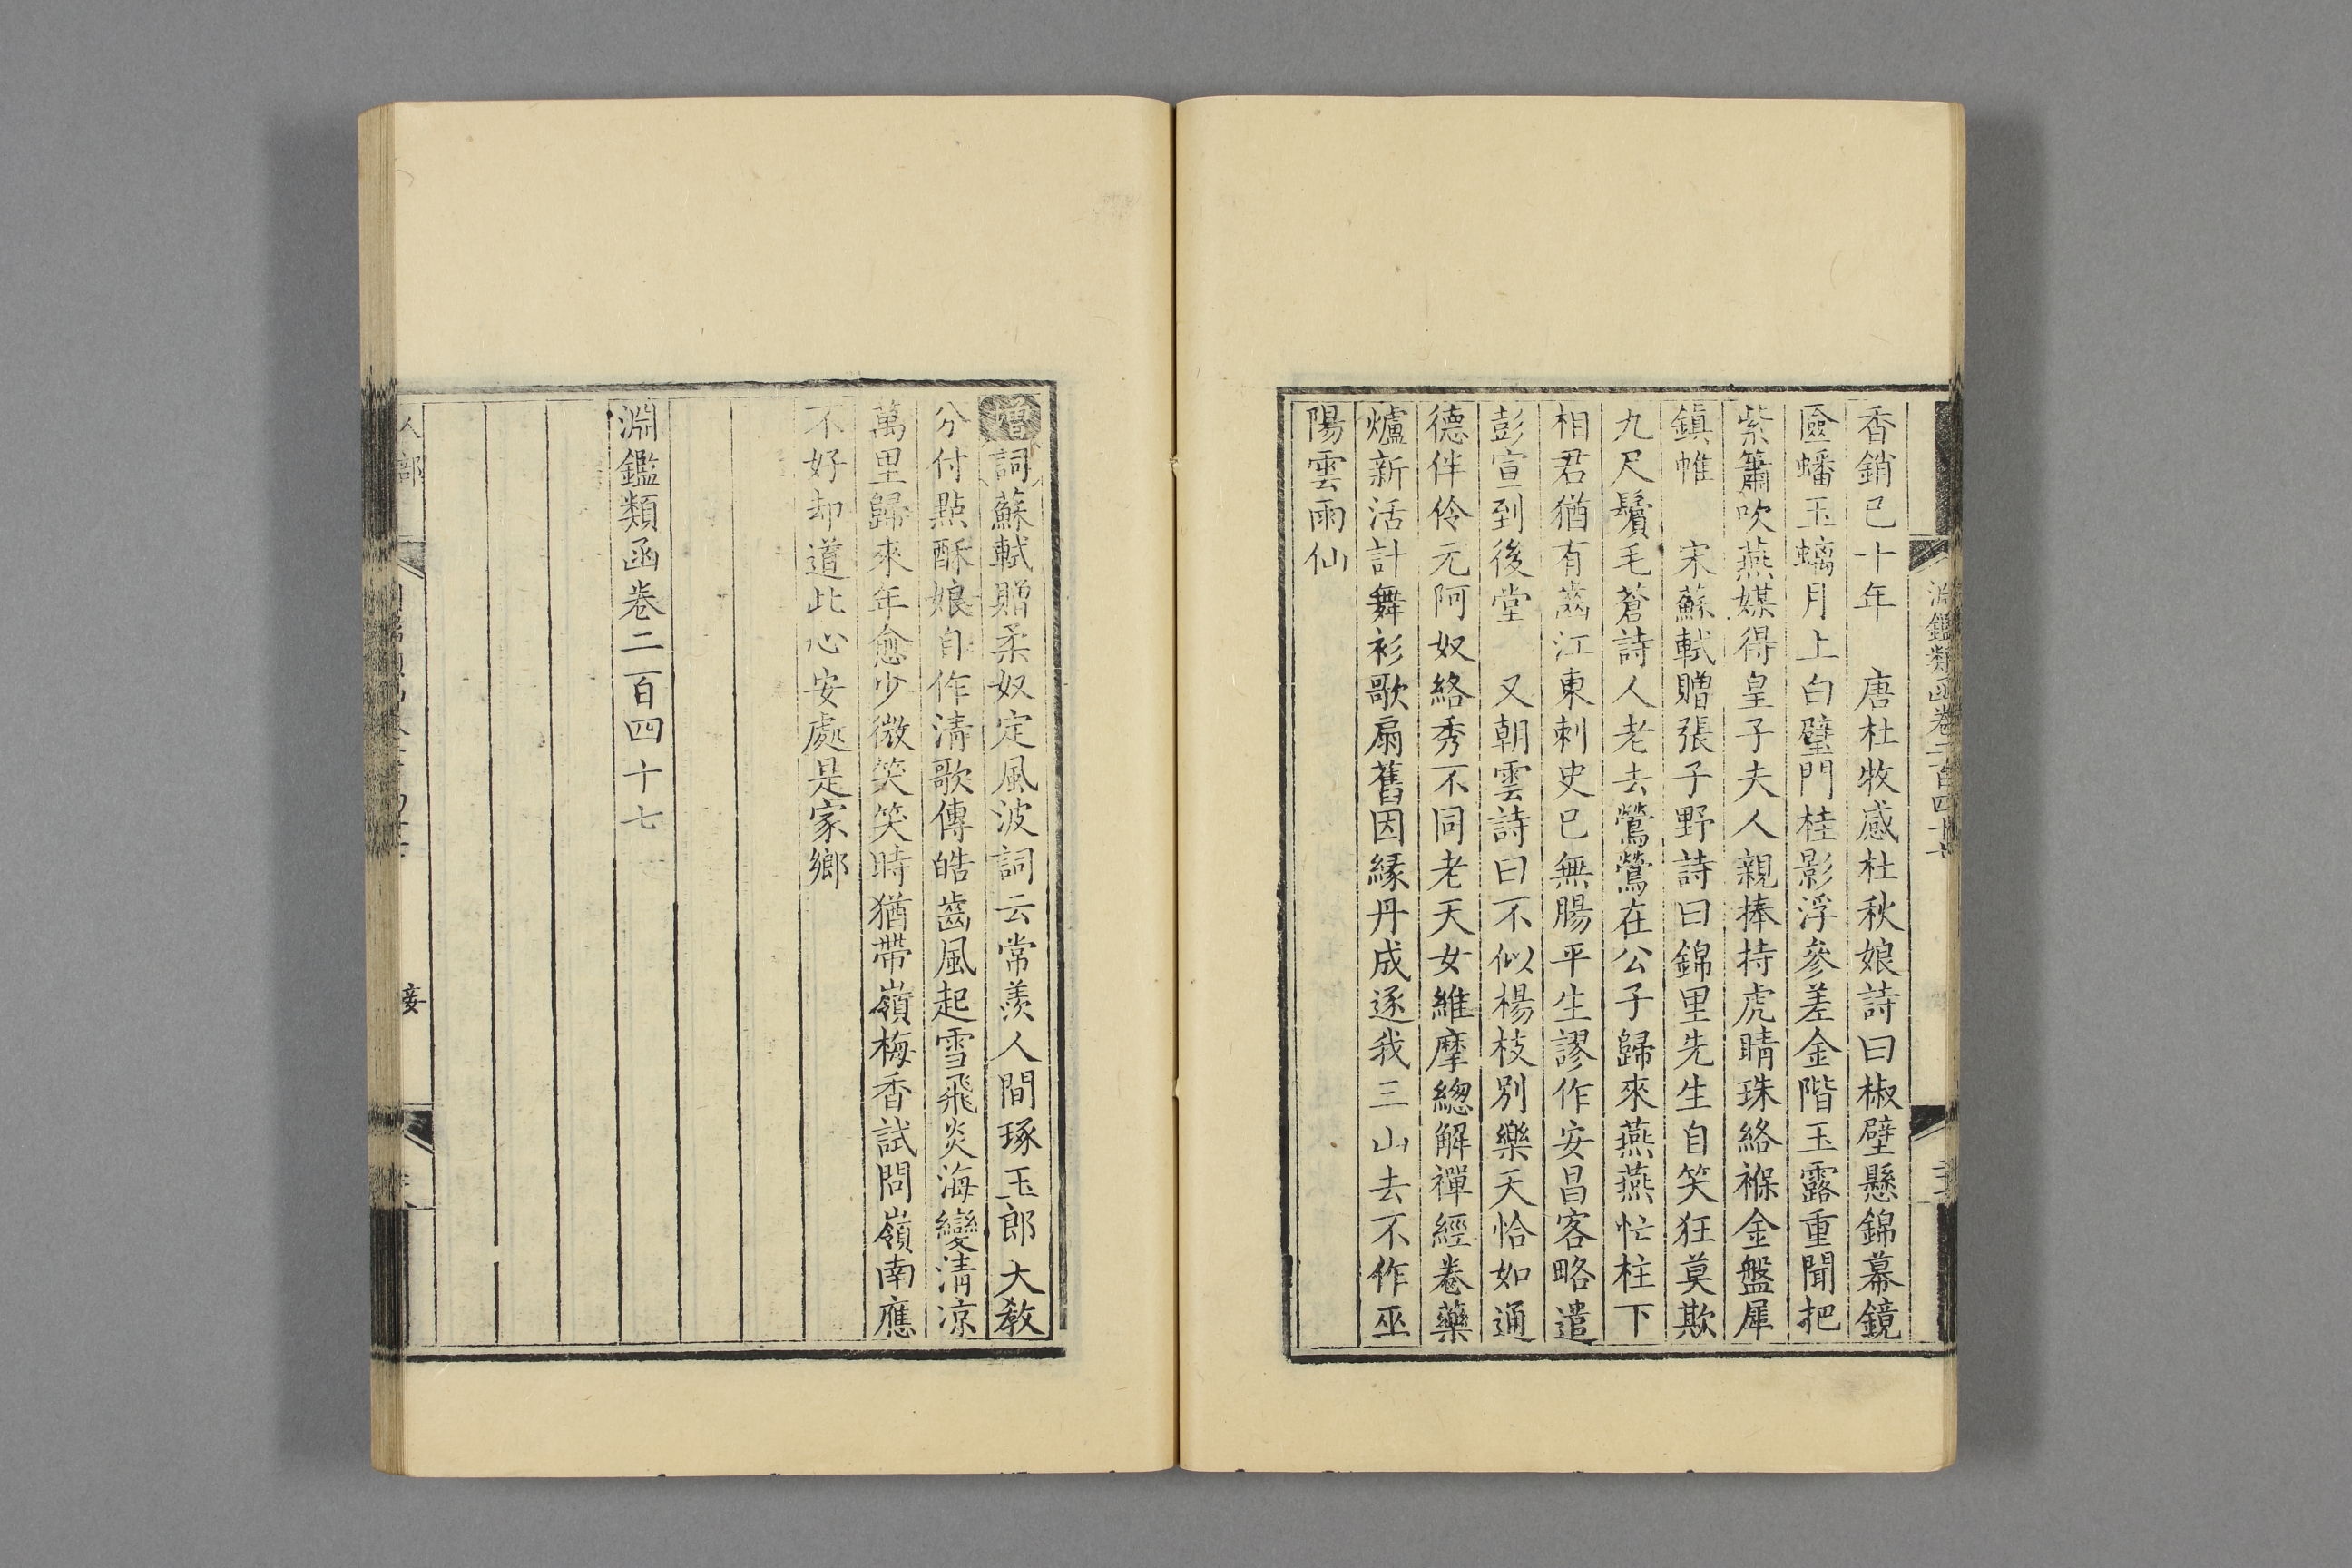 淵鑑類函卷二百四十七
香銷已十年　唐杜牧感杜秋娘詩曰椒壁懸錦幕鏡
奩蟠玉螭月上白璧門桂影浮參差金階玉露重聞把
紫簫吹燕媒得皇子夫人親捧持虎睛珠絡褓金盤犀
鎮帷　宋蘇軾贈張子野詩曰錦里先生自笑狂莫欺
九尺鬢毛蒼詩人老去鶯鶯在公子歸來燕燕忙柱下
相君猶有齒江東刺史已無腸平生謬作安昌客略遣
彭宣到後堂　又朝雲詩曰不似楊枝別樂天恰如通
德伴伶元阿奴絡秀不同老天女維摩總解禪經卷藥
爐新活計舞衫歌扇舊因緣丹成逐我三山去不作巫
陽雲雨仙
增詞蘇軾贈柔奴定風波詞云常羨人間琢玉郎大教
分付點酥娘自作清歌傳皓齒風起雪飛炎海變清涼
萬里歸來年愈少微笑笑時猶帶嶺梅香試問嶺南應
不好却道此心安處是家鄉
淵鑑類函卷二百四十七
人部
妾